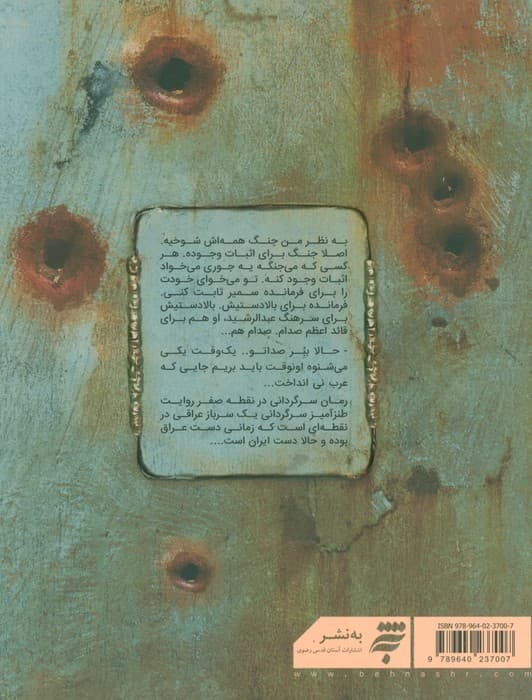 به نظر من جنگ همه‌اش شوخیه.
اصلا جنگ برای اثبات وجوده. هر
کسی که می‌جنگه یه جوری می‌خواد
اثبات وجود کنه. تو می‌خوای خودت
را برای فرمانده سمیر ثابت کنی.
فرمانده برای بالادستیش. بالادستیش
برای سرهنگ عبدالرشید، او هم برای
قائد اعظم صدام. صدام هم...
- حالا بِبُر صداتو.. یک‌وقت یکی
می‌شنوه اونوقت باید بریم جایی که
عرب نی انداخت...
رمان سرگردانی در نقطه صفر روایت
طنزآمیز سرگردانی یک سرباز عراقی در
نقطه‌ای است که زمانی دست عراق
بوده و حالا دست ایران است....
به‌نشر
انتشارات آستان قدس رضوی
ISBN 978-964-02-3700-7
9 789640 237007
www.behnashr.com